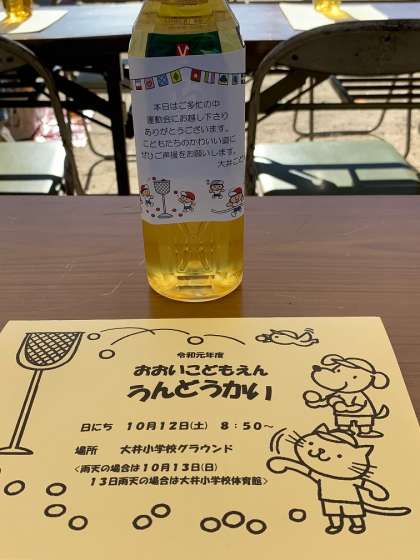 本日はご多忙の中
運動会にお越し下さり
ありがとうございます。
こどもたちのかわいい姿に
ぜひご声援をお願いします。
大井こど
令和元年度
おおいこどもえん
うんどうかい
日にち 10月12日(土) 8:50~
場所 大井小学校グラウンド
<雨天の場合は10月13日(日)
13日雨天の場合は大井小学校体育館>